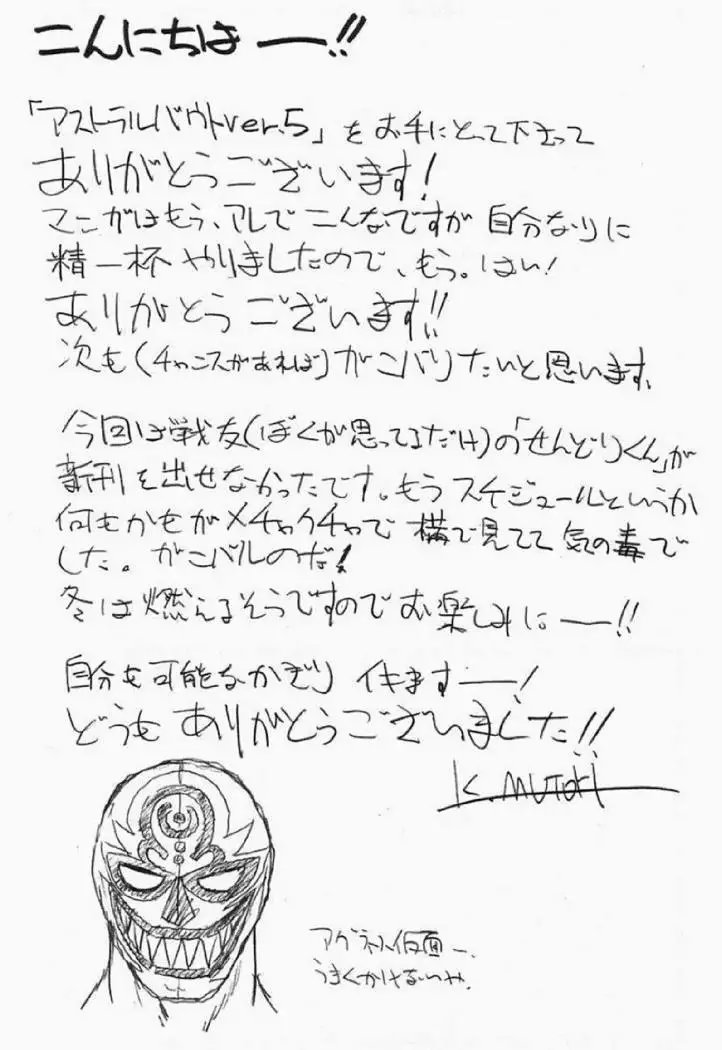 こんにちはー!!
「アストラルバウトver.5」をお手にとって下さって
ありがとうございます!
マンガはもう、アレでこんなですが自分なりに
精一杯やりましたので、もう。はい!
ありがとうございます!!
次も(チャンスがあれば)ガンバリたいと思います。
今回は戦友(ぼくが思ってるだけ)の「せんどりくん」が
新刊を出せなかったです。もうスケジュールというか
何もかもがメチャクチャで横で見てて気の毒で
した。ガンバルのだ!
冬は燃えるそうですのでお楽しみにー!!
自分も可能なかぎりイキますー!
どうもありがとうございました!!
K.MUTOH
アグネス仮面ー。
うまくかけないや。